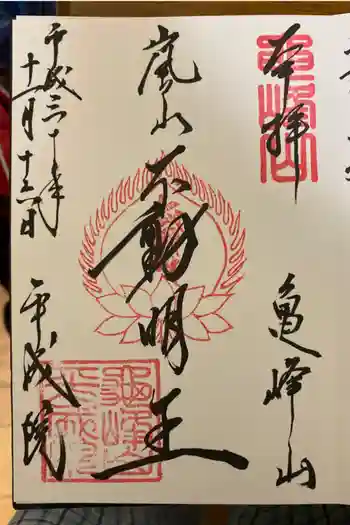 奉拝
亀峰山
嵐山
不動明王
平成三十年
十一月十六日
平成院